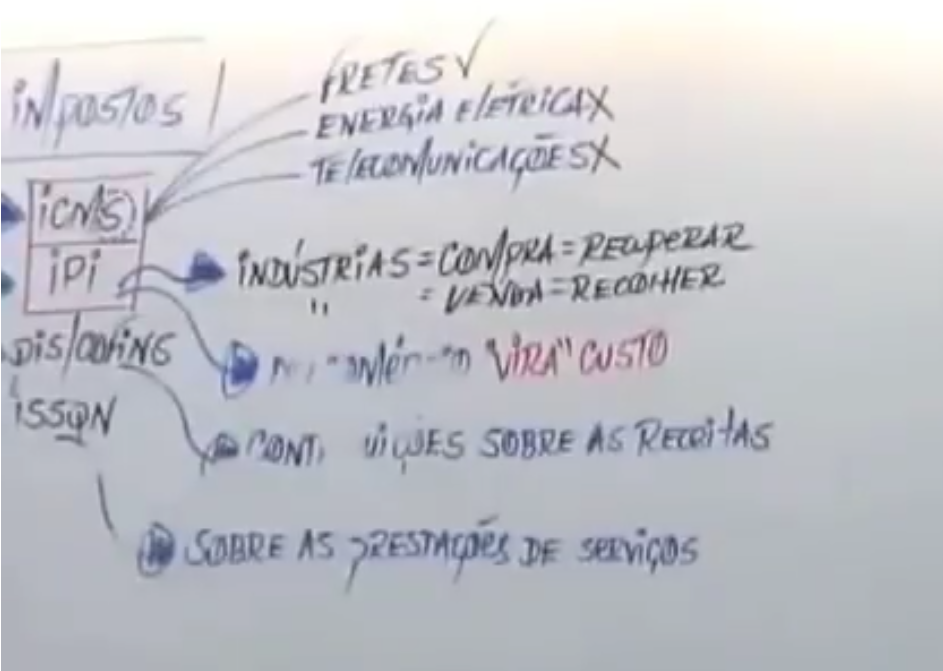 IMPOSTOS
FRETES √
ENERGIA ELÉTRICA X
TELECOMUNICAÇÕES X
ICMS
IPI
INDÚSTRIAS = COMPRA = RECUPERAR
" = VENDA = RECOLHER
"VIRA" CUSTO
PIS/COFINS
SOBRE AS RECEITAS
ISSQN
SOBRE AS PRESTAÇÕES DE SERVIÇOS